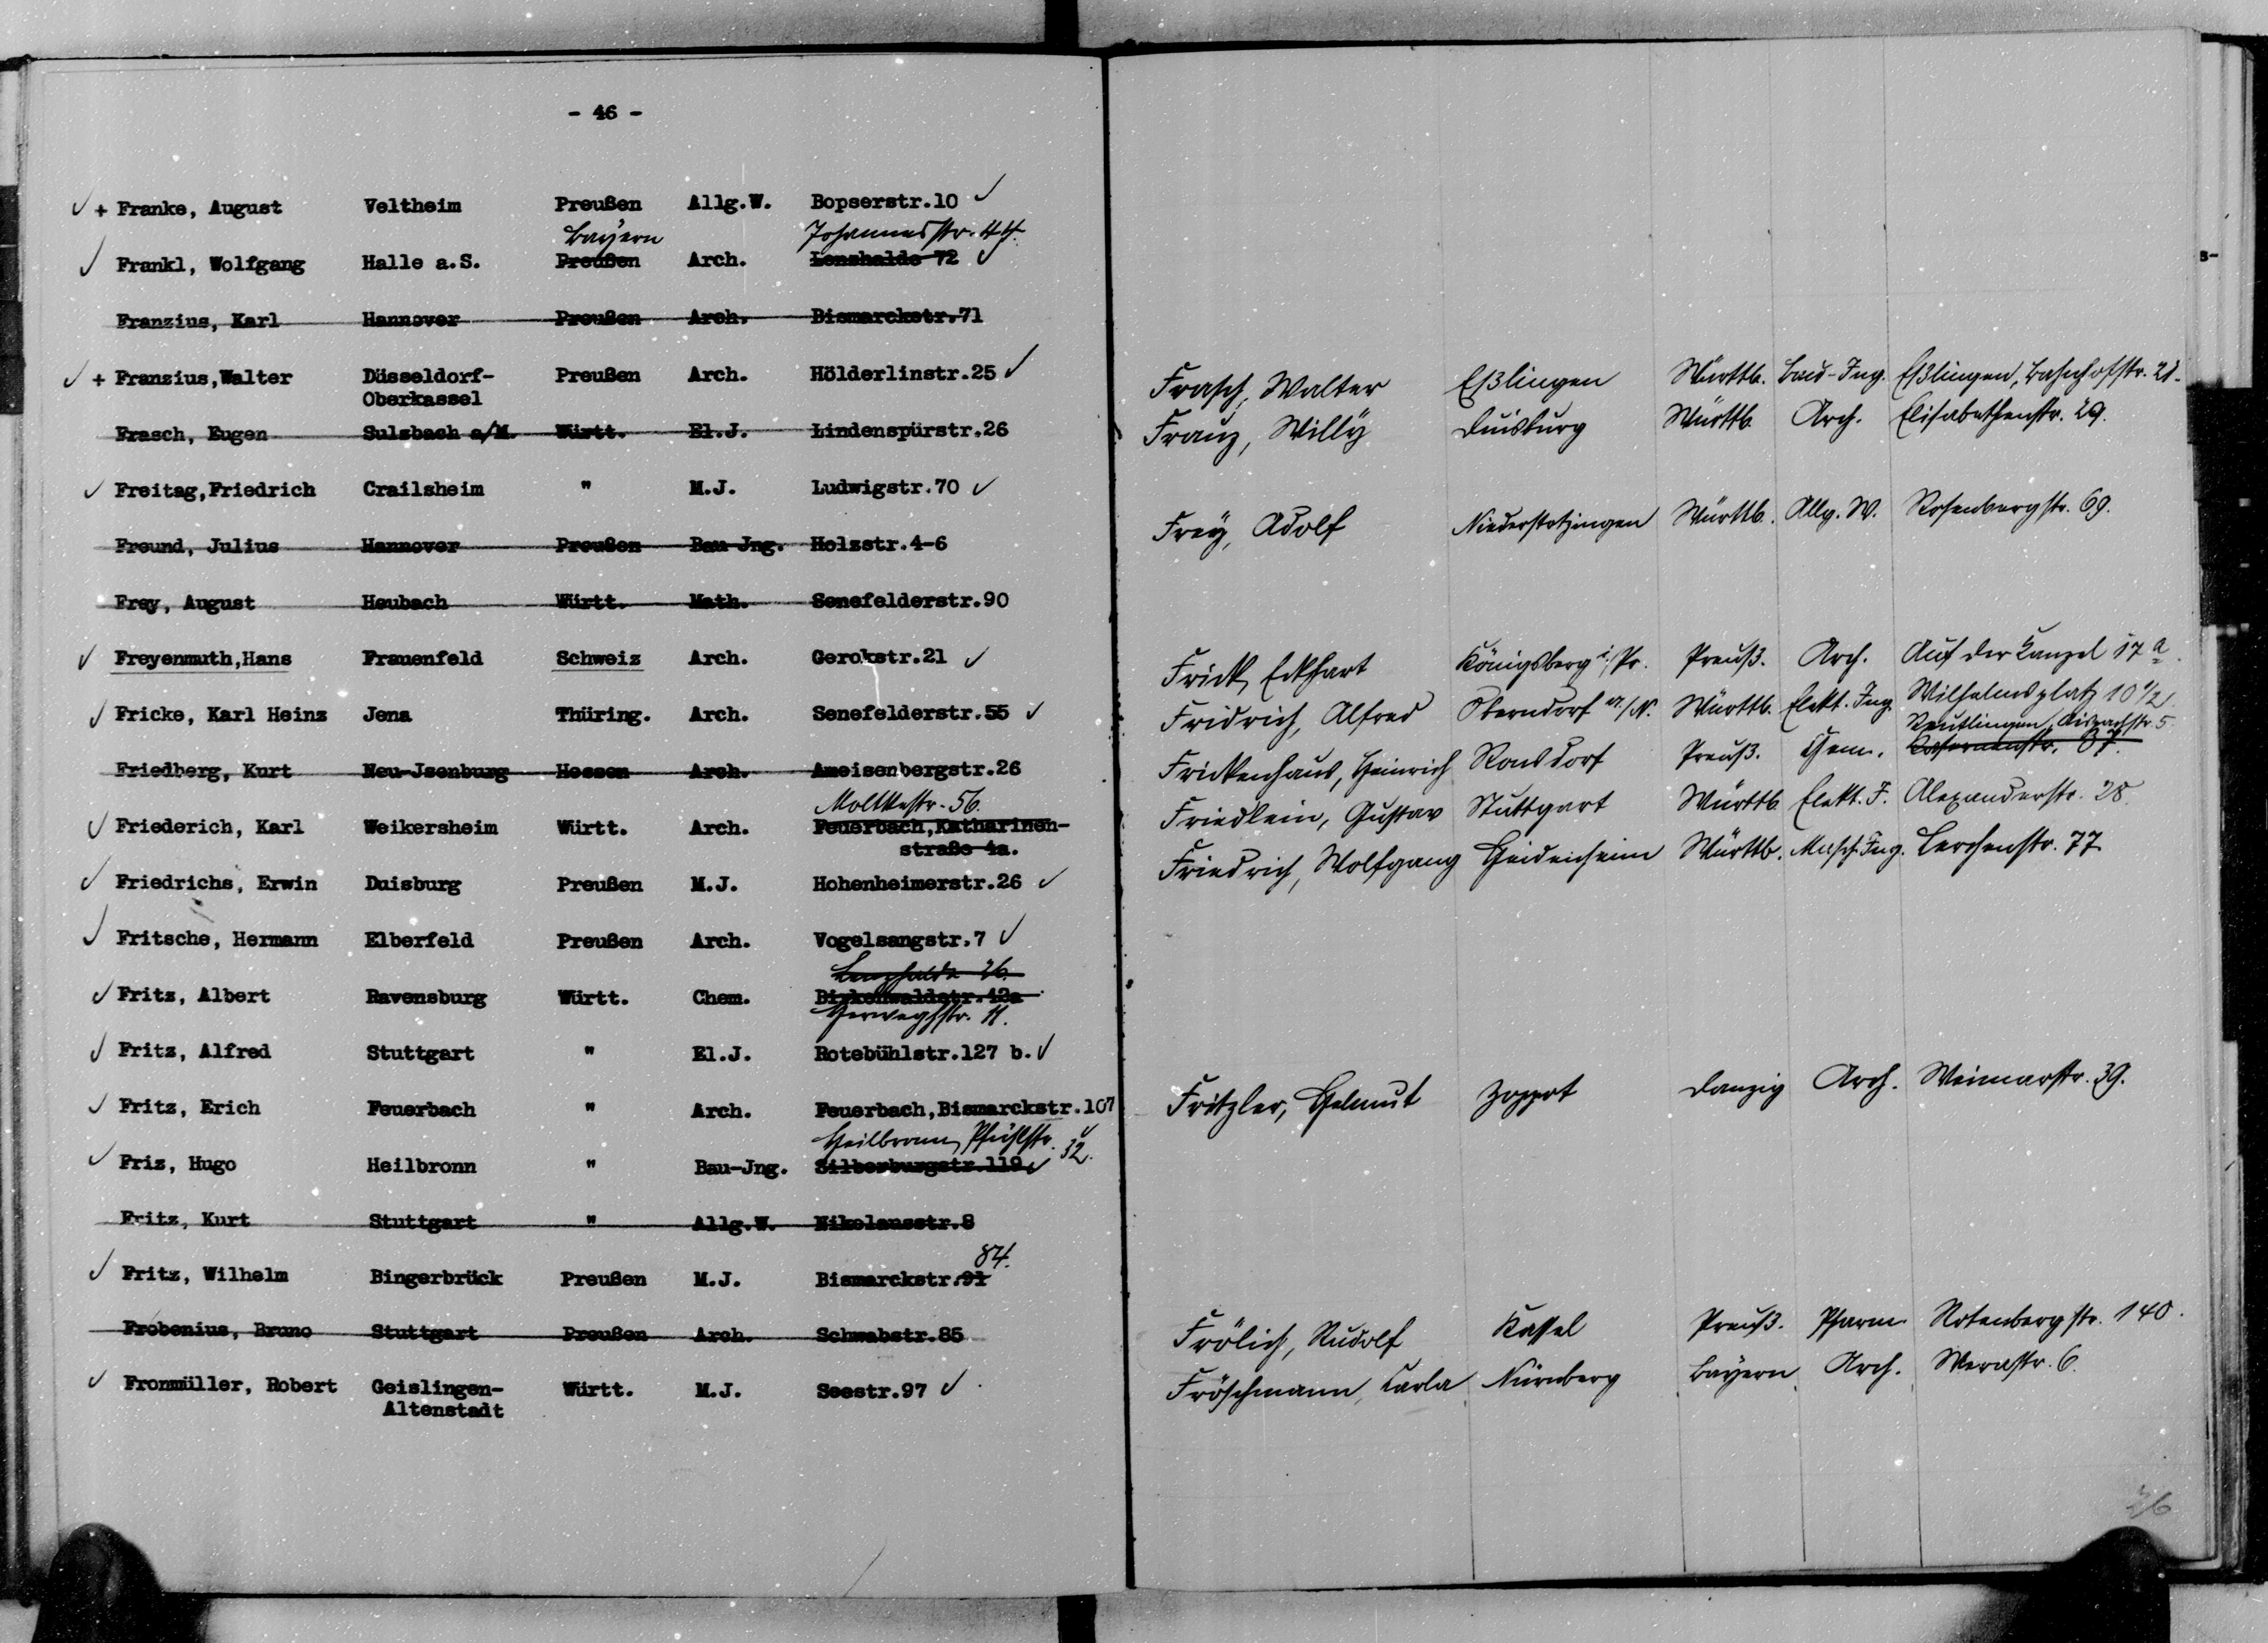 - 46 -
+ Franke, August Veltheim Preußen Allg.W. Bopserstr.10
Bayern Johannesstr. 44.
Frankl, Wolfgang Halle a.S. Preußen Arch. Lenzhalde 72
Franzius, Karl Hannover Preußen Arch. Bismarckstr.71
+ Franzius,Walter Düsseldorf- Preußen Arch. Hölderlinstr.25
Oberkassel
Frasch, Eugen Sulzbach a/M. Württ. El.J. Lindenspürstr.26
Freitag,Friedrich Crailsheim " M.J. Ludwigstr.70
Freund, Julius Hannover Preußen Bau Jng. Holzstr.4-6
Frey, August Heubach Württ. Math. Senefelderstr.90
Freyenmuth,Hans Frauenfeld Schweiz Arch. Gerokstr.21
Fricke, Karl Heinz Jena Thüring. Arch. Senefelderstr.55
Friedberg, Kurt Neu-Jsenburg Hessen Arch. Ameisenbergstr.26
Moltkestr. 56.
Friederich, Karl Weikersheim Württ. Arch. Feuerbach,Katharinen-
straße 4a.
Friedrichs, Erwin Duisburg Preußen M.J. Hohenheimerstr.26
Fritsche, Hermann Elberfeld Preußen Arch. Vogelsangstr.7
Lenzhalde 26.
Fritz, Albert Ravensburg Württ. Chem. Birkenwaldstr.42a
Herweghstr. 11.
Fritz, Alfred Stuttgart " El.J. Rotebühlstr.127 b.
Fritz, Erich Feuerbach " Arch. Feuerbach,Bismarckstr.107
Heilbronn, Pfühlstr. 32.
Friz, Hugo Heilbronn " Bau-Jng. Silberburgstr.119
Fritz, Kurt Stuttgart " Allg.W. Nikolausstr.8
84.
Fritz, Wilhelm Bingerbrück Preußen M.J. Bismarckstr.91
Frobenius, Bruno Stuttgart Preußen Arch. Schwabstr.85
Fronmüller, Robert Geislingen- Württ. M.J. Seestr.97
Altenstadt
Frasch, Walter Eßlingen Württb. Bau-Ing. Eßlingen, Bahnhofstr. 21.
Franz, Willy Duisburg Württb. Arch. Elisabethenstr. 29.
Frey, Adolf Niederstotzingen Württb. Allg. W. Rosenbergstr. 69.
Frick, Eckhart Königsberg i/Pr. Preuß. Arch. Auf der Kanzel 17 a.
Fridrich, Alfred Oberndorf a/N. Württb. Elekt. Ing. Wilhelmsplatz 10 1/2.
Reutlingen, 5.
Frickenhaus, Heinrich Ronsdorf Preuß. Chem. Kasernenstr. 67.
Friedlein, Gustav Stuttgart Württb Elekt. I. Alexanderstr. 28.
Friedrich, Wolfgang Heidenheim Württb. Masch.Ing. Lerchenstr. 77
Fritzler, Helmut Zoppot Danzig Arch. Weimarstr. 39.
Frölich, Rudolf Kassel Preuß. Pharm. Rotenbergstr. 140.
Fröschmann, Karla Nürnberg Bayern Arch. Werastr. 6.
26